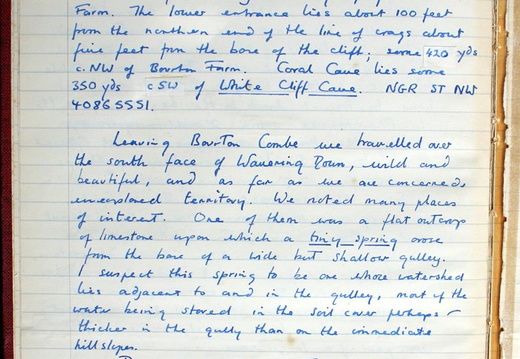 Farm. The lower entrance lies about 100 feet
from the northern end of the line of crags about
five feet from the base of the cliff; some 420 yds
c.NW of Bourton Farm. Coral Cave lies some
350 yds cSW of White Cliff Cave. NGR ST NW
40865551.
Leaving Bourton Combe we travelled over
the south face of Wavering Down, wild and
beautiful, and as far as we are concerned,
unexplored territory. We noted many places
of interest. One of them was a flat outcrop
of limestone upon which a tiny spring arose
from the base of a wide but shallow gulley.
I suspect this spring to be one whose watershed
lies adjacent to and in the gulley, most of the
water being stored in the soil cover perhaps
thicker in the gully than on the immediate
hillslopes.